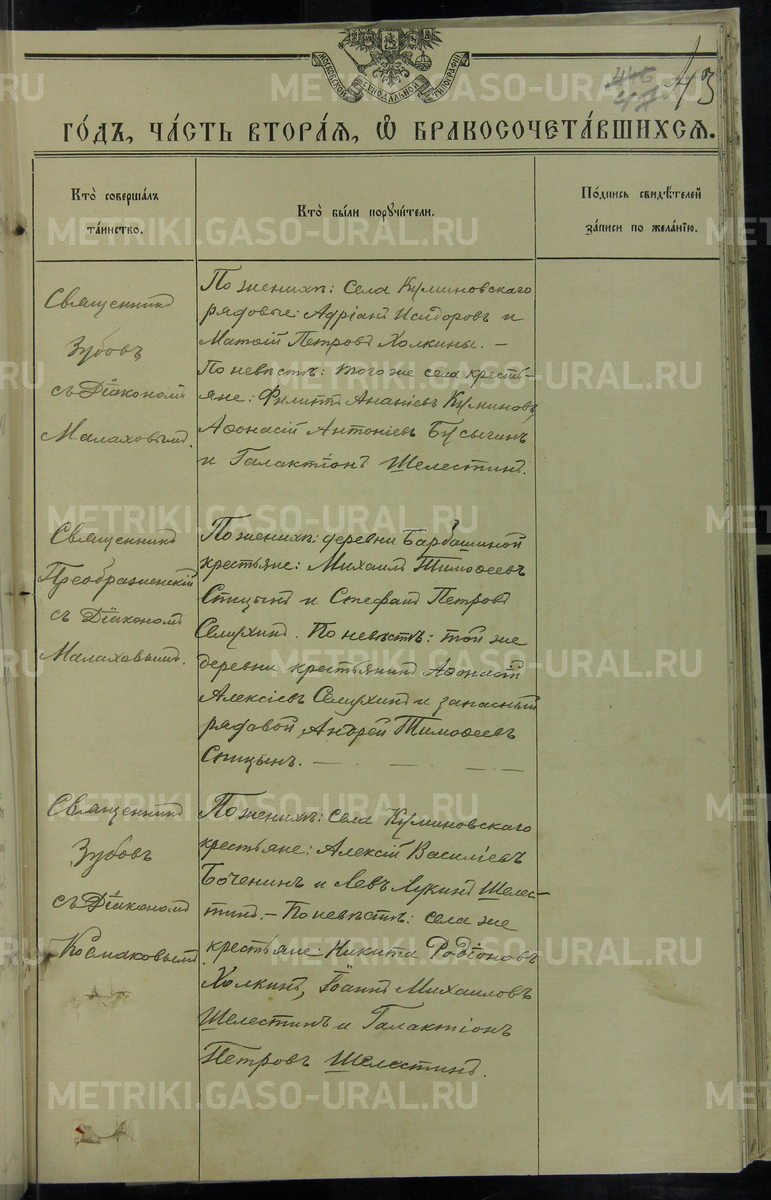 МОСКОВСКОЙ СѴНОДАЛЬНОЙ ТИПОГРАФІИ
446
47
43
ГОДЪ, ЧАСТЬ ВТОРАЯ, Ѽ БРАКОСОЧЕТАВШИХСЯ.
Кто совершалъ
таинство.
Кто были поручители.
Подпись свидѣтелей
записи по желанію.
Священникъ
Зубовъ
съ Діакономъ
Малаховымъ.
По женихѣ: села Куминовскаго
рядовые: Адріанъ Исидоровъ и
Матѳій Петровъ Холкины. –
По невѣстѣ: того же села кресть-
яне: Филиппъ Ананіевъ Куминовъ,
Аѳонасій Антоніевъ Бусыгинъ
и Галактіонъ Шелестинъ.
Священникъ
Преображенскій
съ Діакономъ
Малаховымъ.
По женихѣ: деревни Барбашиной
крестьяне: Михаилъ Тимоѳеевъ
Спицынъ и Стефанъ Петровъ
Селухинъ. По невѣстѣ: той же
деревни крестьянинъ Аѳонасій
Алексіевъ Селухинъ и запасный
рядовой Андрей Тимоѳеевъ
Спицынъ. –
Священникъ
Зубовъ
съ Діакономъ
Космаковымъ
По женихѣ: села Куминовскаго
крестьяне: Алексій Василіевъ
Боченинъ и Левъ Лукинъ Шелес-
тинъ. – По невѣстѣ: села же
крестьяне: Никита Родіоновъ
Холкинъ, Іоаннъ Михаиловъ
Шелестинъ и Галактіонъ
Петровъ Шелестинъ.
METRIKI.GASO-URAL.RU